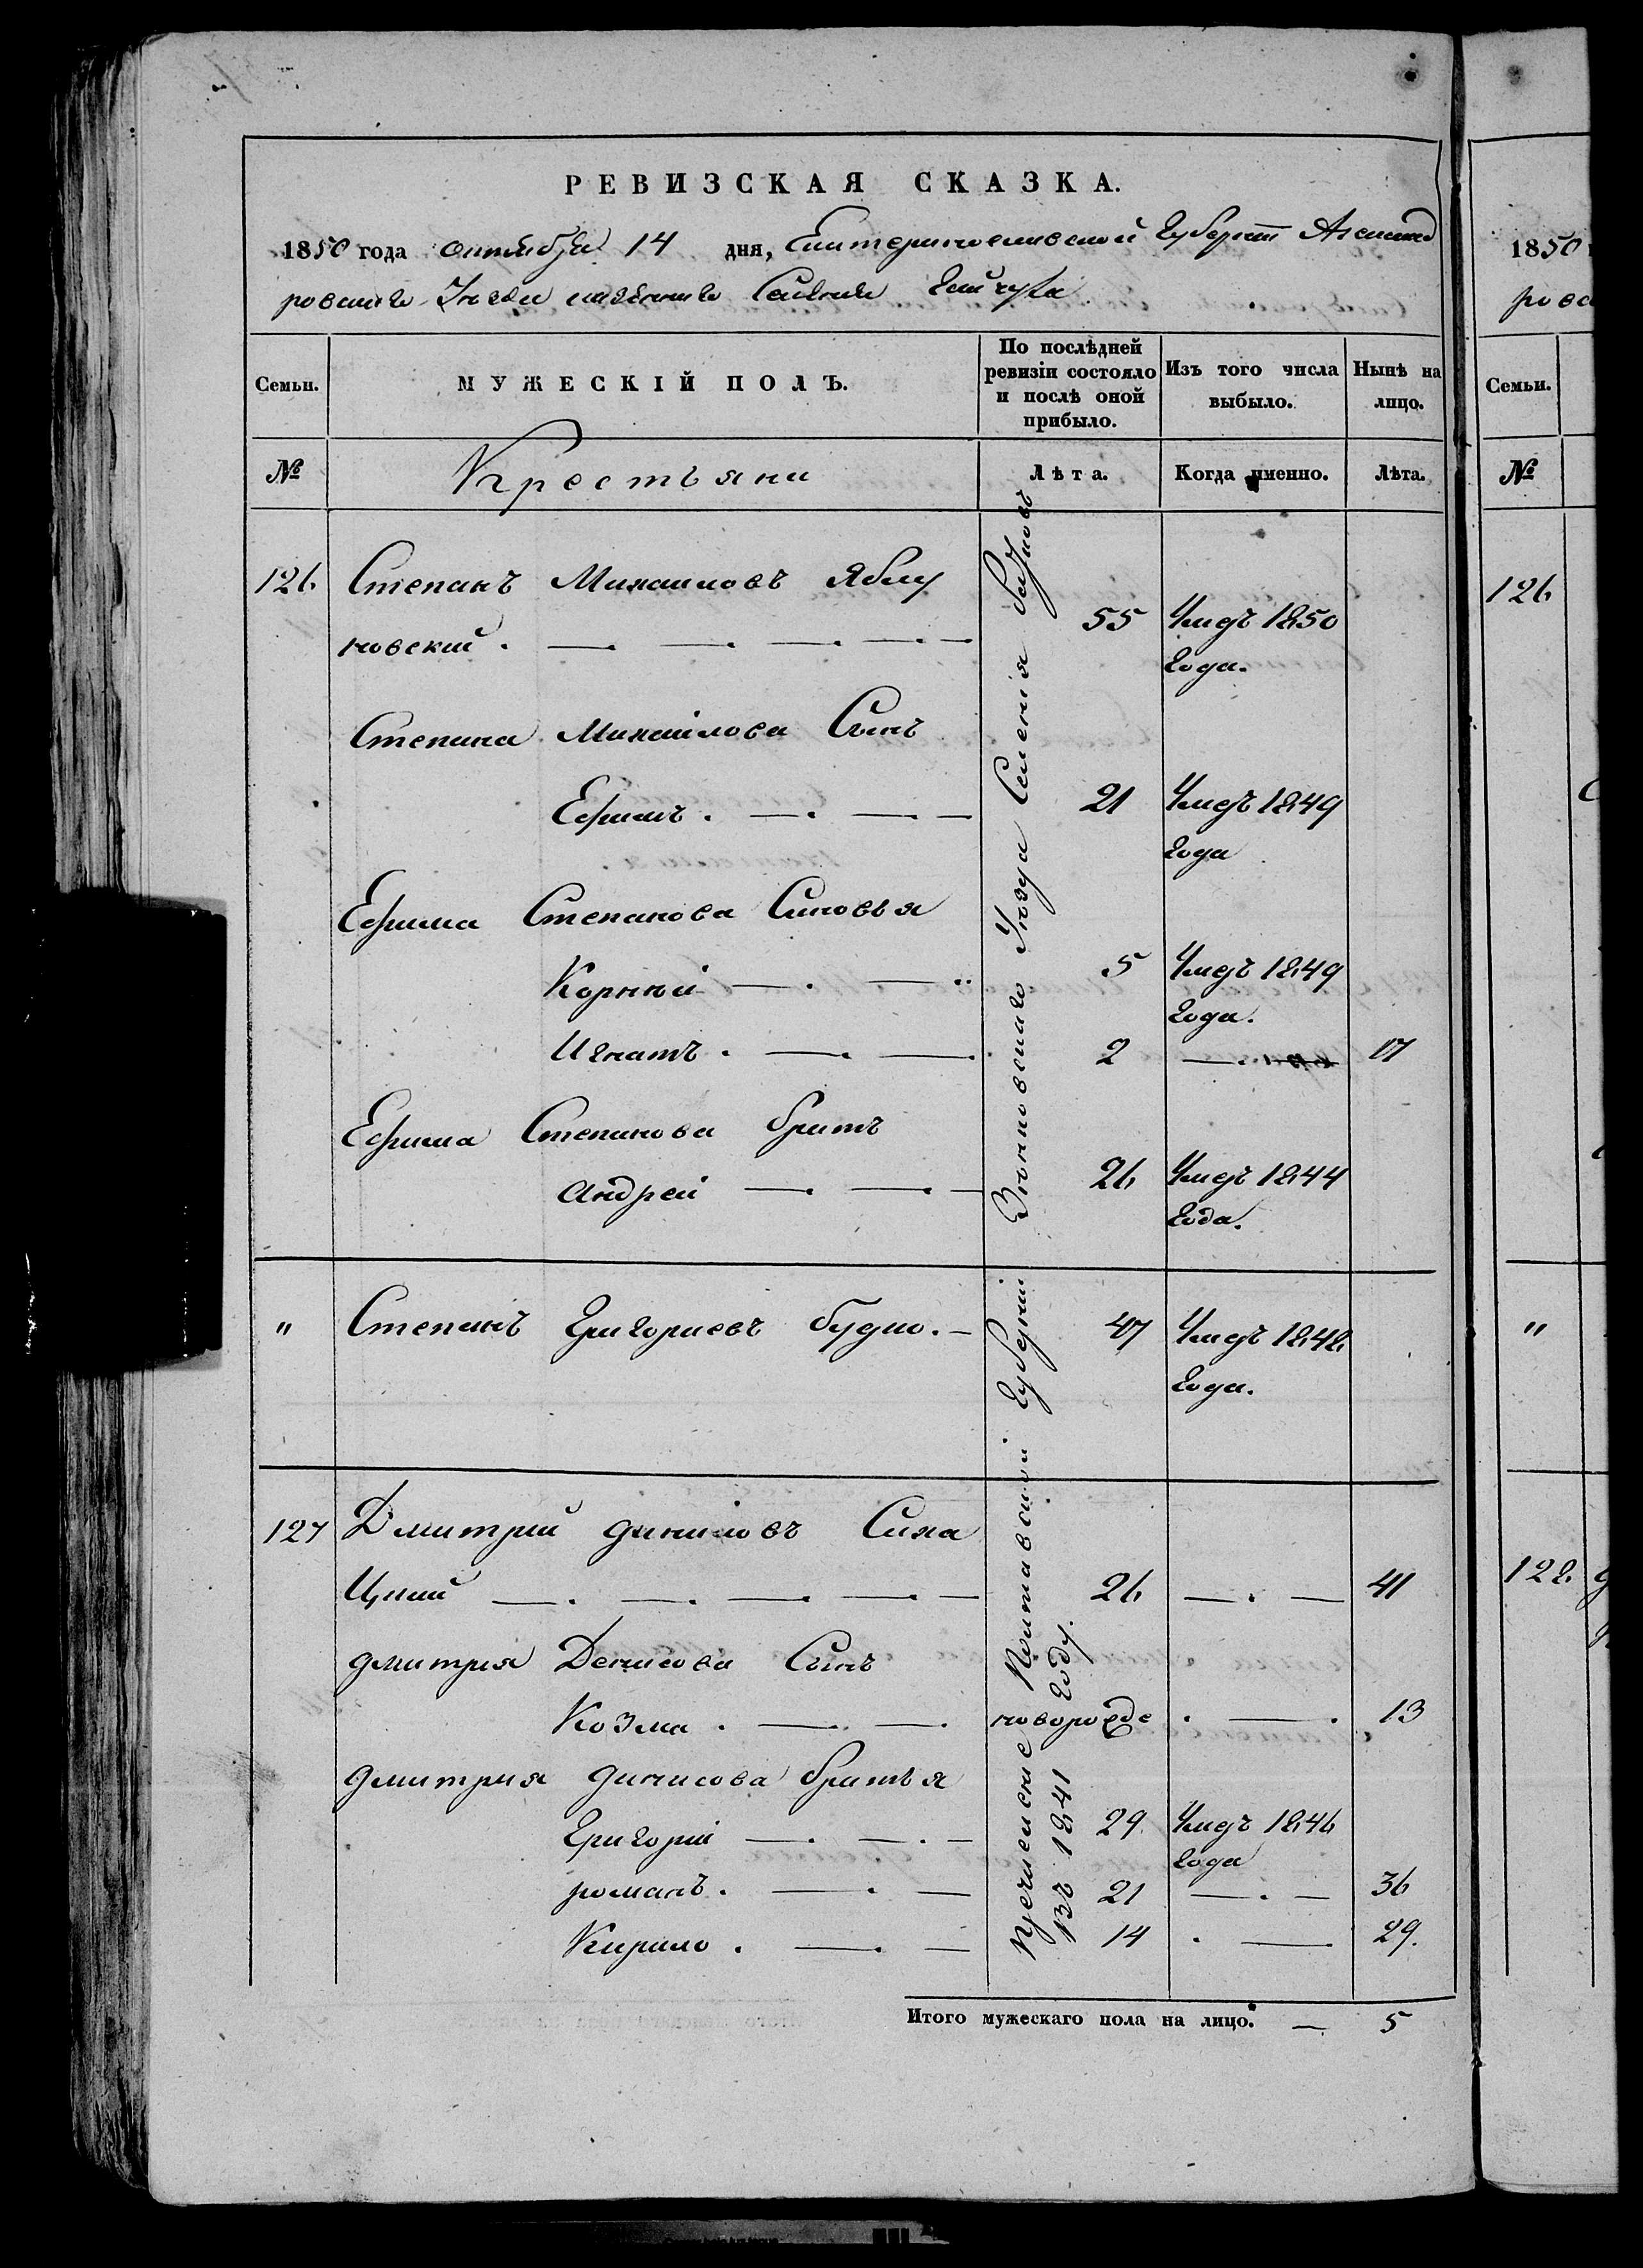 РЕВИЗСКАЯ СКАЗКА.
1850 года октября 14 дня, Екатеринославской Губернии Александ
ровскаго Уезда казеннаго Селения Гайчула
Семьи.
МУЖЕСКІЙ ПОЛЪ.
По послѣдней ревизіи состояло и послѣ оной прибыло.
Изъ того числа выбыло.
Нынѣ на лицо.
№
Крестьяни
Лѣта.
Когда именно.
Лѣта.
126 Степанъ Михаиловъ Яблу
новский. 55 Умеръ 1850
года.
Степана Михаілова Сынъ
Ефимъ. 21 Умеръ 1849
года
Ефима Степанова Синовья
Корній 5 Умеръ 1849
года.
Игнатъ. 2 17
Ефима Степанова братъ
Андрей 26 Умеръ 1844
года.
" Степанъ Григориевъ 47 Умеръ 1848
года.
127 Дмитрий Денисовъ Сина
Цкий 26 41
Дмитрия Денисова Сынъ
Козма. новорожде 13
Дмитрия Денисова братья
Григорій 29 Умеръ 1846
года
романъ. 21 36
Кирило. 14 29.
Полтавской Губерніи Зеньковскаго Уезда Селенія
въ 1841 году.
Итого мужескаго пола на лицо. 5
1850
рова
Семьи.
№
126
"
128